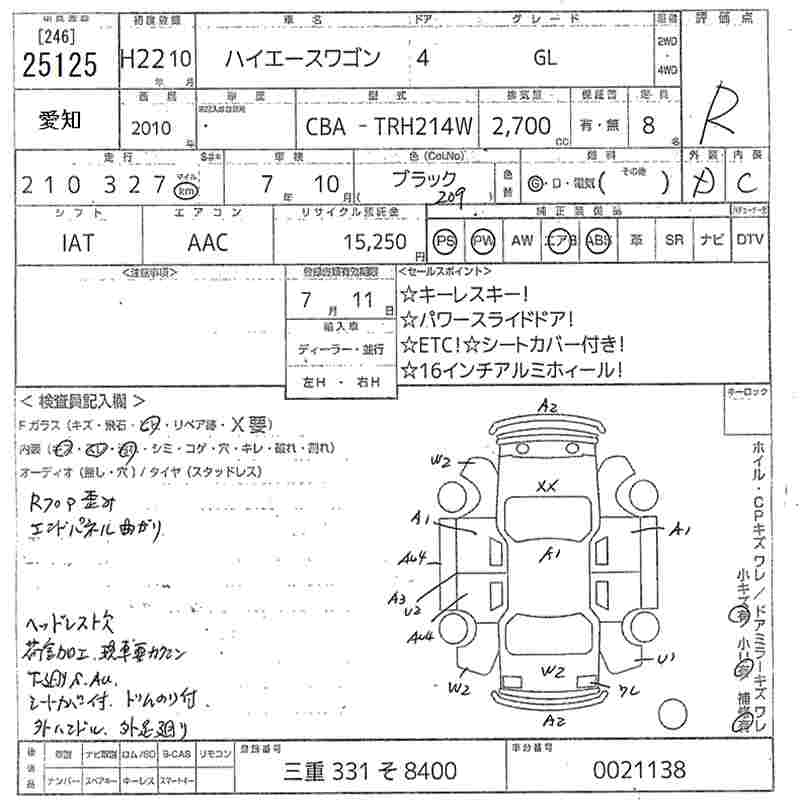 [246] 初度登録 車名 ドア グレード 評価点
25125 H22 10 ハイエースワゴン 4 GL 2WD 4WD
年 月
R
愛知 型式 排気量 定員
2010 ・ CBA - TRH214W 2,700 有・無 8
年 CC 名
走行 車検 色(Col.No) 燃料 外装 内装
210327 マイル km 7 年 10 月 ブラック 209 色替 G・ロ・電気( その他 ) A C
シフト エアコン リサイクル預託金 純正装備品
IAT AAC 15,250 円 PS PW AW エアB ABS 革 SR ナビ DTV
<注意事項> <セールスポイント>
7 月 11 日
☆キーレスキー!
☆パワースライドドア!
☆ETC!☆シートカバー付き!
☆16インチアルミホィール!
輸入車
ディーラー・並行
左H ・ 右H
キーロック
<検査員記入欄>
Fガラス(キズ・飛石・ヒビ・リペア跡・X要)
内装(キズ・スレ・汚れ・シミ・コゲ・穴・キレ・破れ・割れ)
オーディオ(無し・穴)/タイヤ(スタッドレス)
Rフロア歪み
エンドパネル曲がり
ヘッドレスト欠
荷室加工、現車要カクニン
下廻りS.AU.
シートカバー付、ドリムのり付
外ハンドル、外足廻り
A2
W2
XX
A1
A1
A1
AU4
A3
U2
AU4
W2
W2
U1
ワレ
A2
ホイル・CPキズ ワレ / ドアミラーキズ ワレ
小キズ有 小U有 補修有
後日品 取説 ナビ取説 ロム/SD B-CAS リモコン 登録番号 車台番号
ナンバー スペアキー キーレス スマートキー 三重 331 そ 8400 0021138